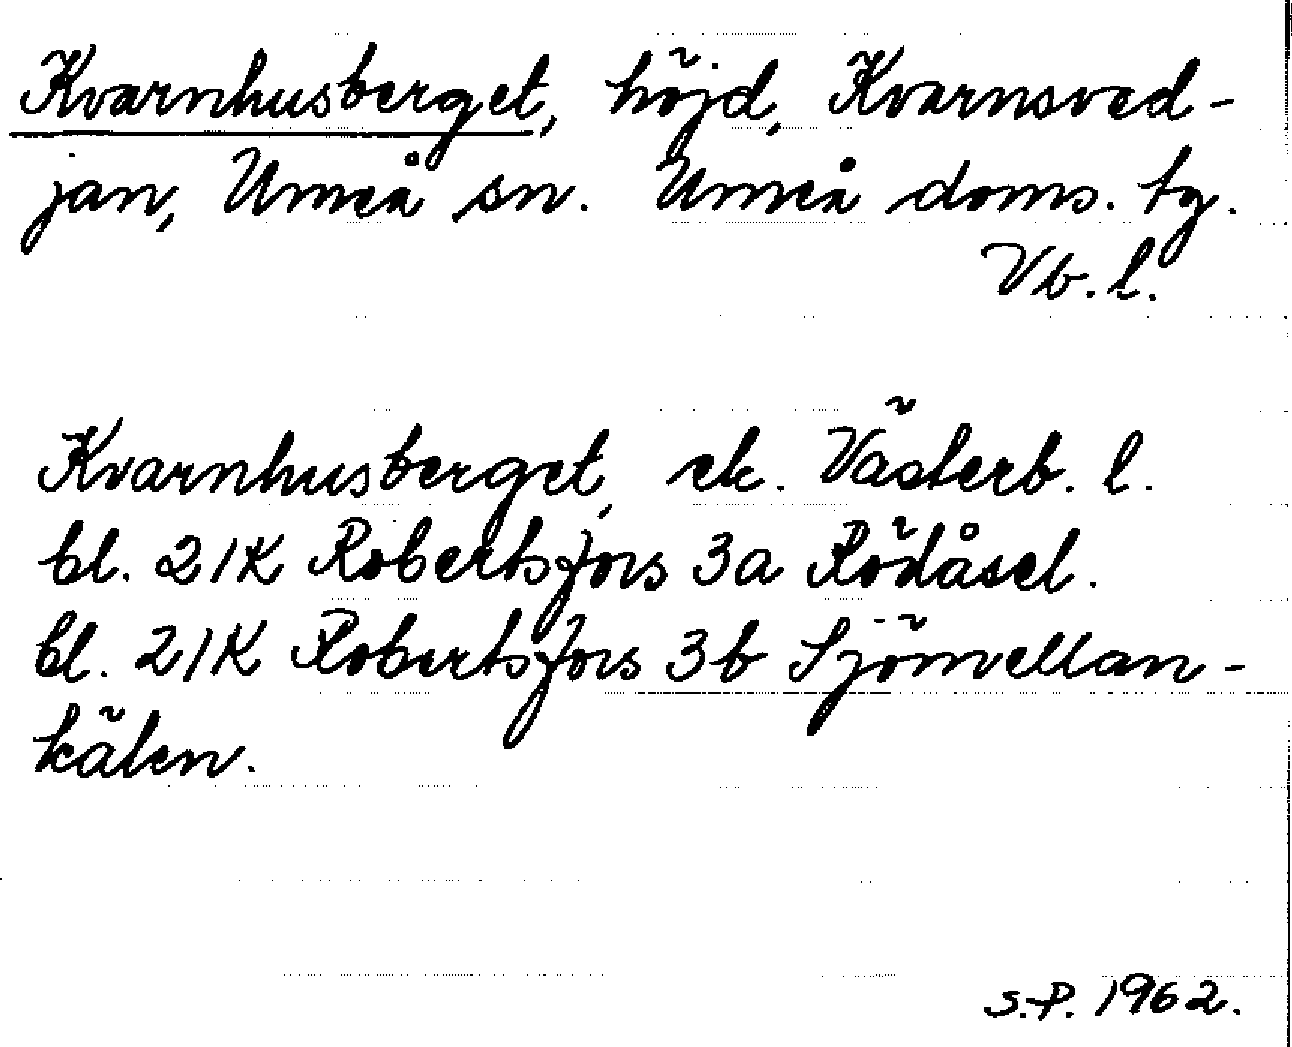 Kvarnhusberget, höjd, Kvarnsved-
jan, Umeå sn. Umeå doms. tg.
Vb. l.
Kvarnhusberget, ek. Västerb. l.
bl. 21K Robertsfors 3a Rödåsel.
bl. 21K Robertsfors 3b Sjömellan-
kälen.
S.-P. 1962.